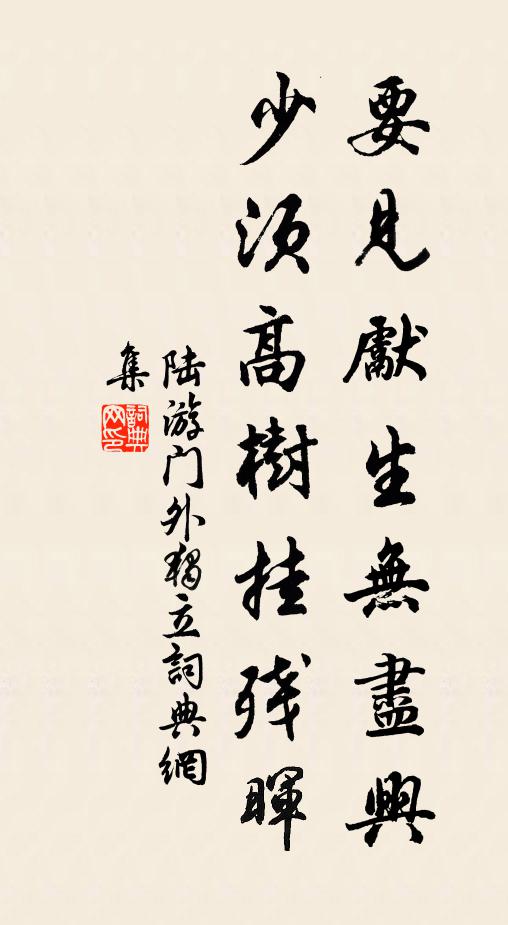 要見獻生無盡興
少須高樹挂殘暉
陸游门外獨立詞典網
集
詞典網印